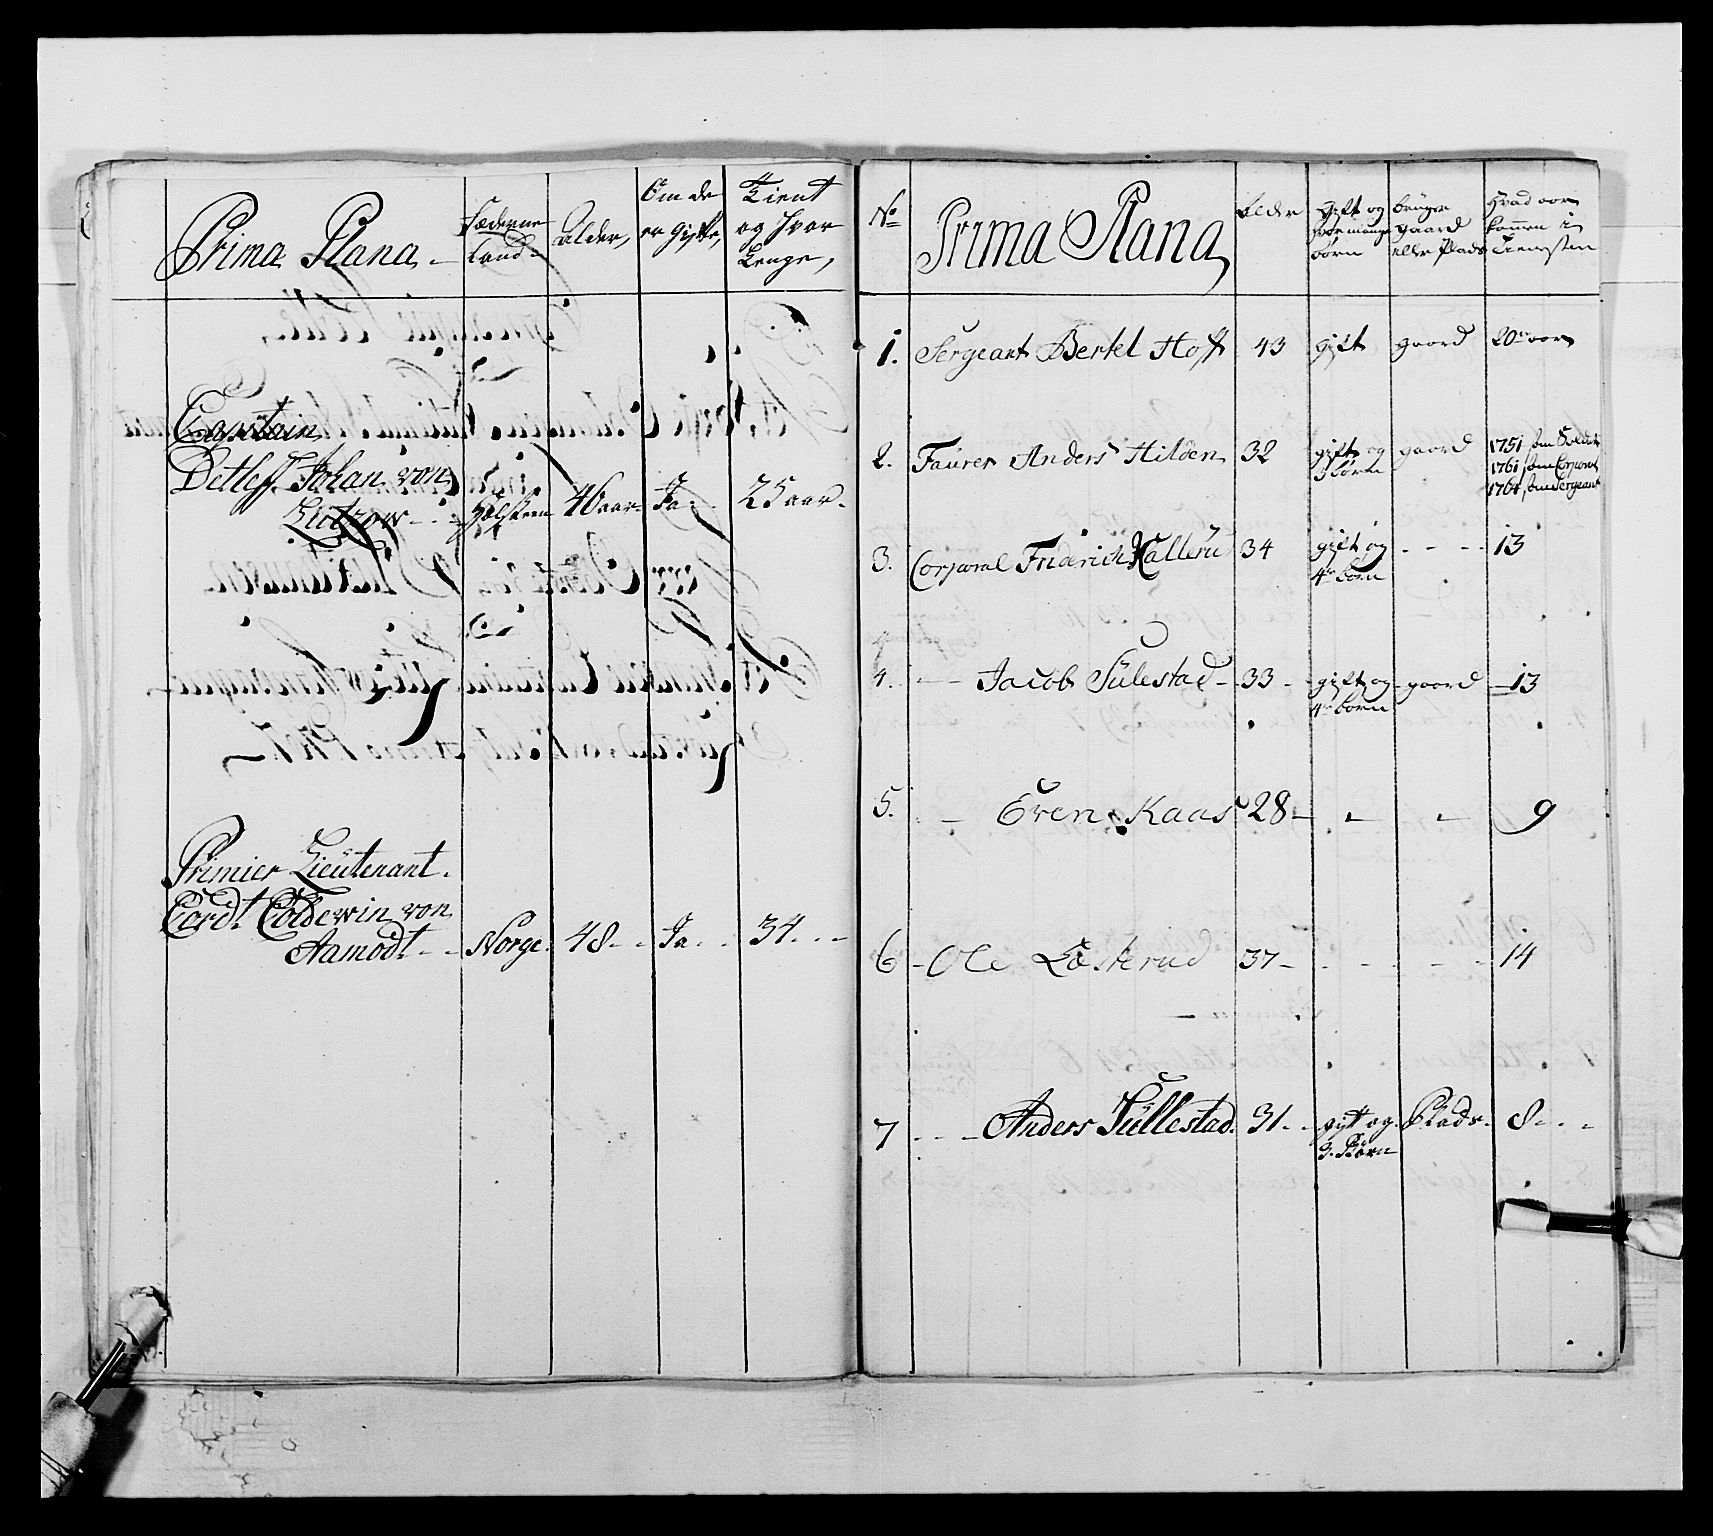 Prima Plana
Fæderne
Land
Alder,
Om de
er gifte,
Tient
og hvor
Lenge,
Captain
Detlef Johan von
Lützow
Holsteen
46 aar
Ja
25 aar
Primier Lieutenant
Cordt Coldewin von
Aamodt
Norge
48
Ja
34
No
Prima Plana
Alder
Gift og
hvor mange
børn
bruger
gaard
eller Plads
Hvad aar
kommen i
Tienesten
1. Sergeant Bertel Hoff 43 gift gaard 20 aar
2. Faurer Anders Hilden 32 gift og gaard 1751 som Soldat
3 børn 1761 som Corporal
1764 som Sergeant
3. Corporal Friderich Kallerud 34 gift og - - - 13
4 børn
4. - - Jacob Sülestad 33 gift og gaard 13
4 børn
5. - Even Kaas 28 - - 9
6 - Ole Læsterud 37 - - - 14
7 - - - Anders Süllestad. 31 gift og Plads 8
3. Børn